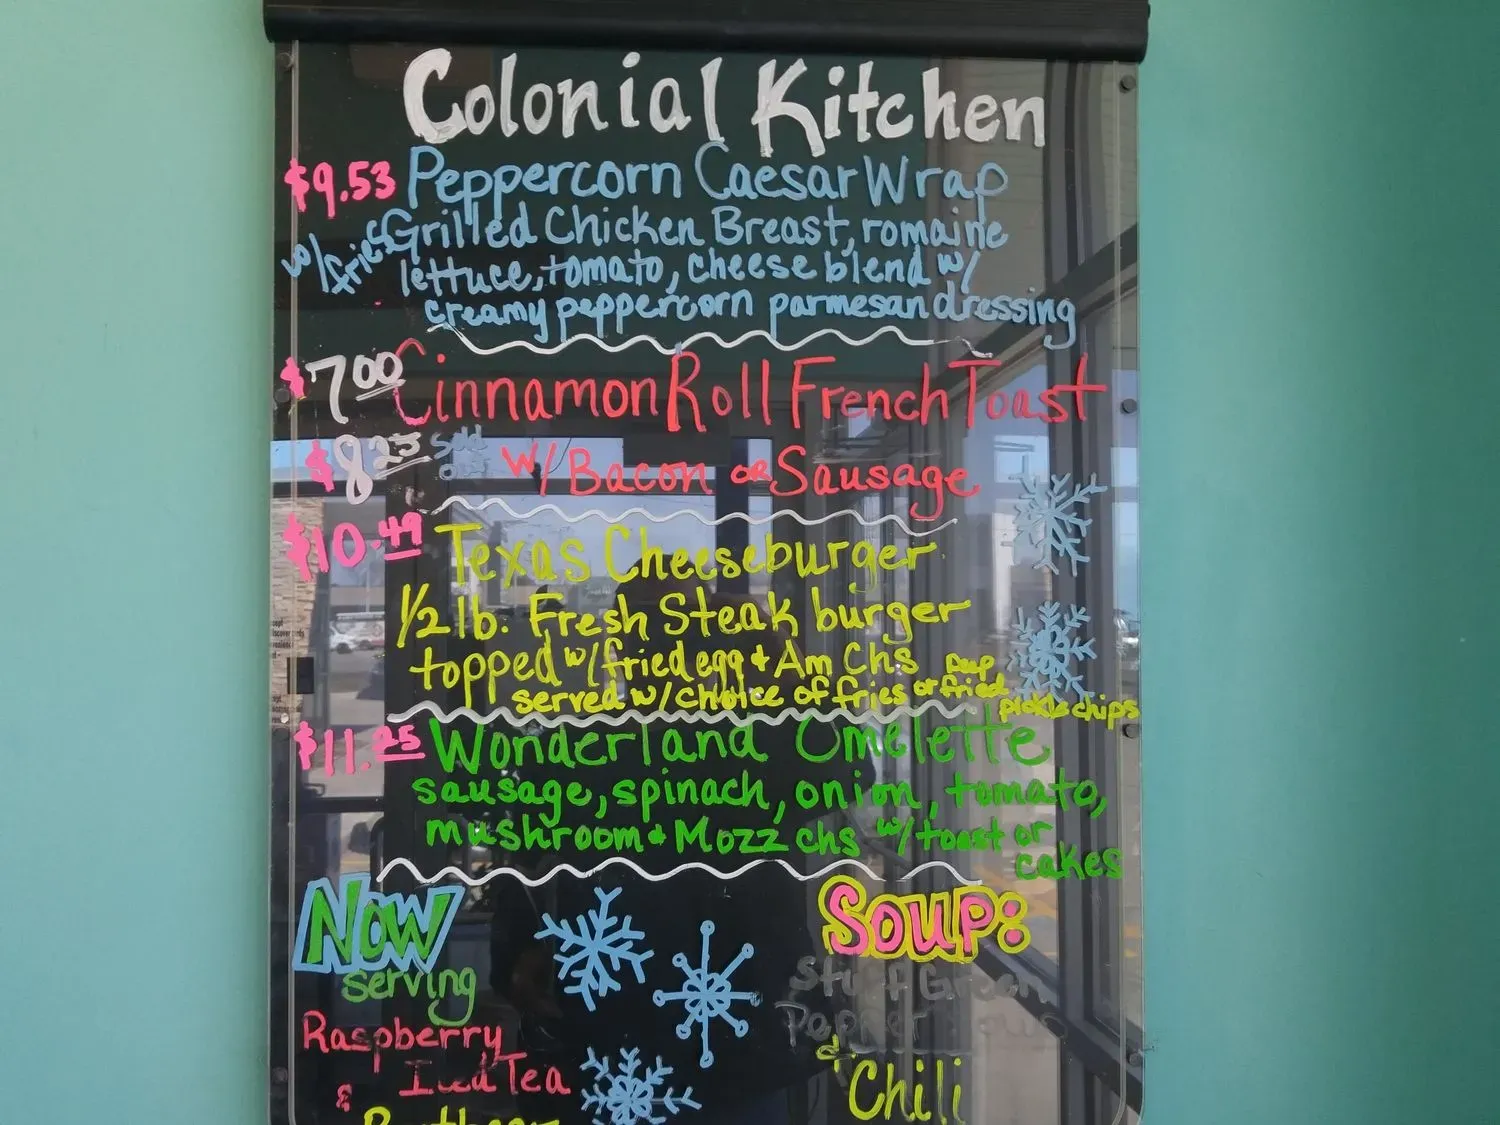 Colonial Kitchen
$9.53 Peppercorn Caesar Wrap
w/fries Grilled Chicken Breast, romaine
lettuce, tomato, cheese blend w/
creamy peppercorn parmesan dressing
$7.00 Cinnamon Roll French Toast
$8.25 Sold out w/Bacon or Sausage
$10.49 Texas Cheeseburger
1/2 lb. Fresh Steak burger
topped w/fried egg + Am Chs
served w/choice of fries or fried
pickle chips
$11.25 Wonderland Omelette
sausage, spinach, onion, tomato,
mushroom + Mozz chs w/toast or
cakes
Now
serving
Raspberry
& Iced Tea
Soup:
Stuff Green
Pepper Soup
& Chili